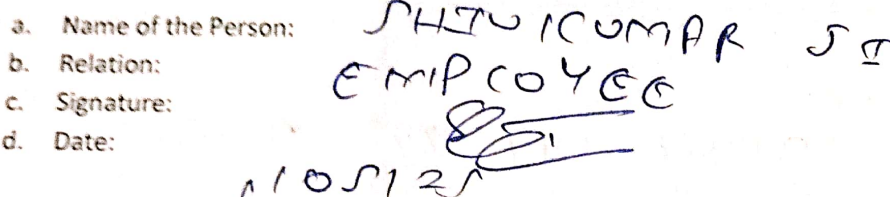 a. Name of the Person: SHIVKUMAR S I
b. Relation: EMPLOYEE
c. Signature:
d. Date: